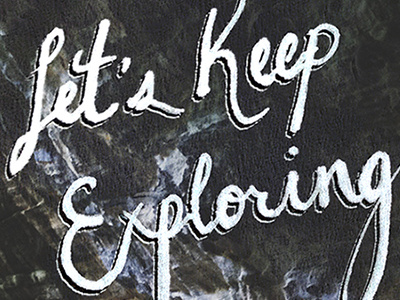 Let's Keep
Exploring